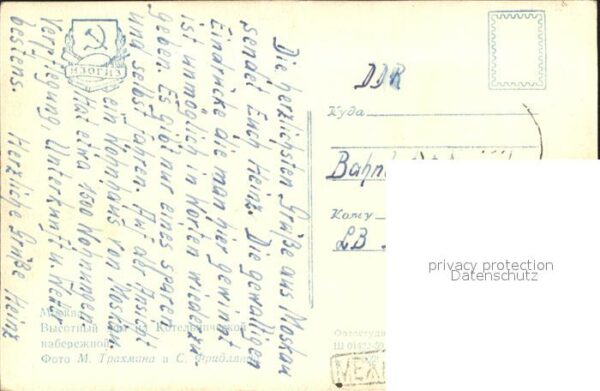 ИЗОГИЗ
Die herzlichsten Grüße aus Moskau
sendet Euch Heinz. Die gewaltigen
Eindrücke die man hier gewinnt
ist unmöglich in Worten wieder zu
geben. Es gibt nur eines sparen
und selbst fahren. Auf der Ansicht
ein Wohnhaus von Moskau.
Hat etwa 1500 Wohnungen.
Verpflegung, Unterkunft u. Wetter
bestens. Herzliche Grüße Heinz
Москва
Высотный дом на Котельнической
набережной
Фото М. Трахмана и С. Фридлянда
DDR
Куда
Кому
LB
privacy protection
Datenschutz